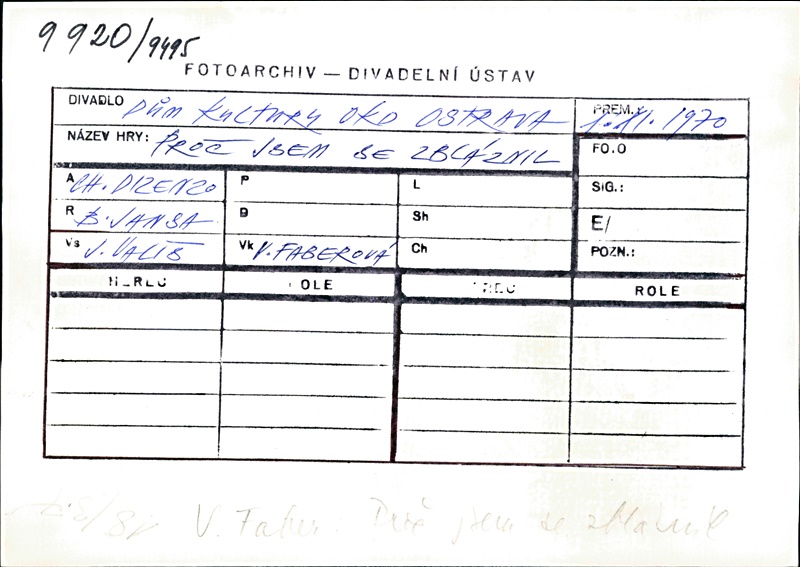 9920/9495
FOTOARCHIV — DIVADELNÍ ÚSTAV
DIVADLO DŮM KULTURY OKD OSTRAVA PREM.: 1.XI.1970
NÁZEV HRY: PROČ JSEM SE ZBLÁZNIL FO.O
A CH. DIZENZO P L SIG.:
R B. JANSA D Sh E/
Vs J. VALIŠ Vk V. FABEROVÁ Ch POZN.:
HEREC ROLE HEREC ROLE
V. Faber: jsem se zbláznil